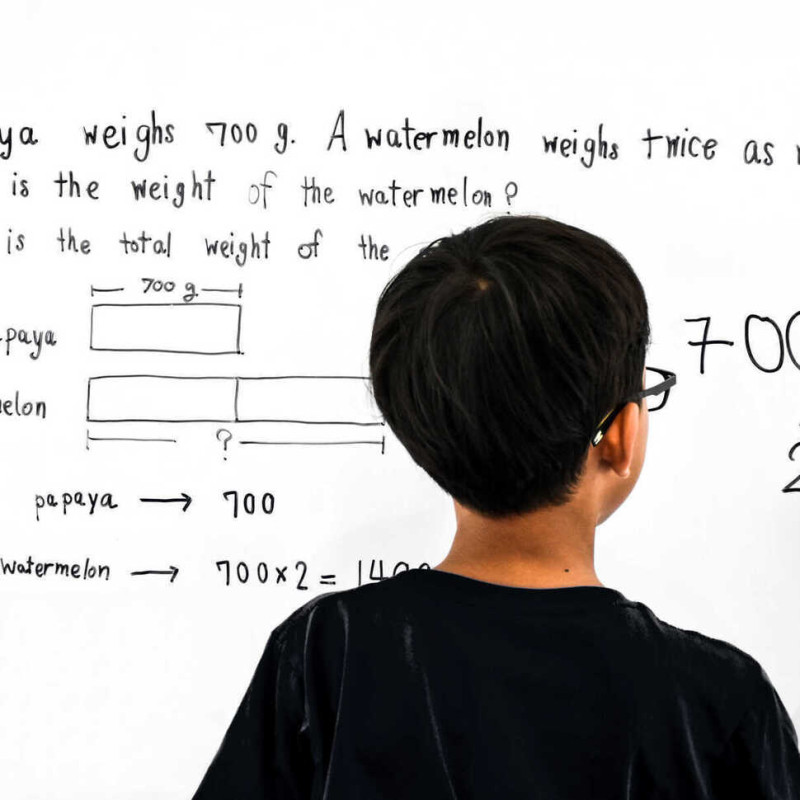 ya weighs 700 g. A watermelon weighs twice as
is the weight of the watermelon?
is the total weight of the
700 g.
paya
elon
?
700
2
papaya → 700
watermelon → 700 x 2 = 1400